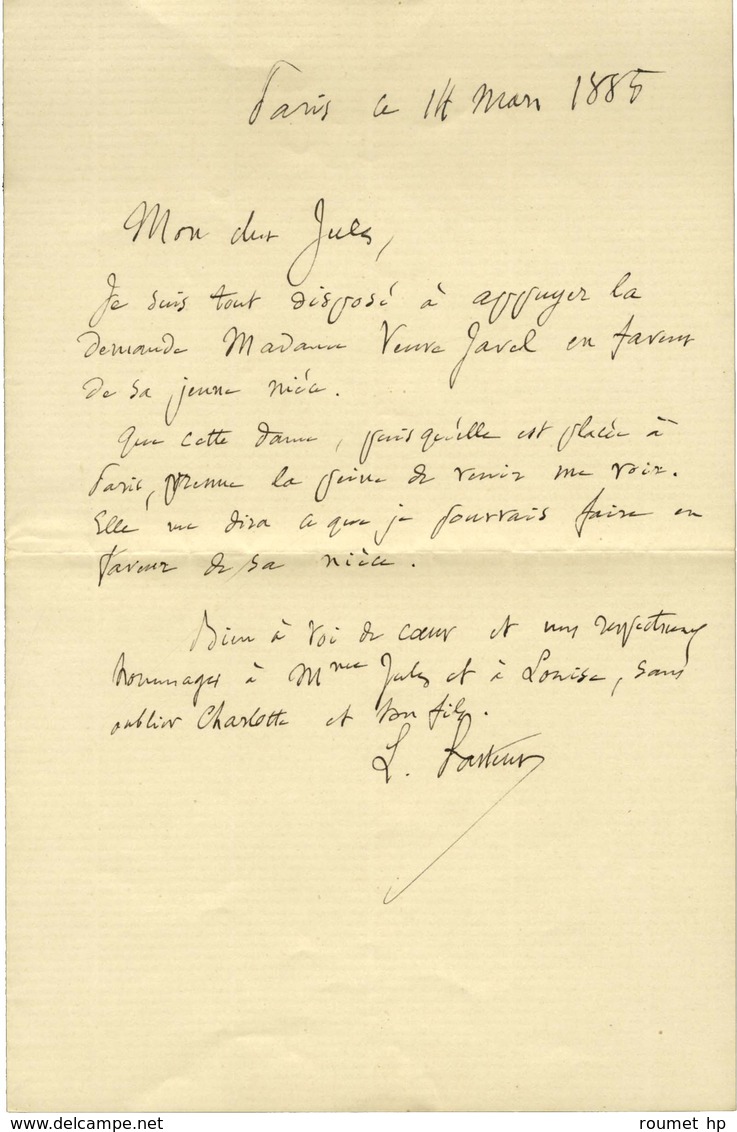 Paris ce 14 Mars 1885
Mon cher Jules,
Je suis tout disposé à appuyer la
demande Madame Veuve Javel en faveur
de sa jeune nièce.
Que cette dame, puisqu'elle est placée à
Paris, prenne la peine de venir me voir.
Elle me dira ce que je pourrais faire en
faveur de sa nièce.
Bien à toi de cœur et mes respectueux
hommages à Mme Jules et à Louise, sans
oublier Charlotte et ton fils.
L. Pasteur
www.delcampe.net
roumet hp